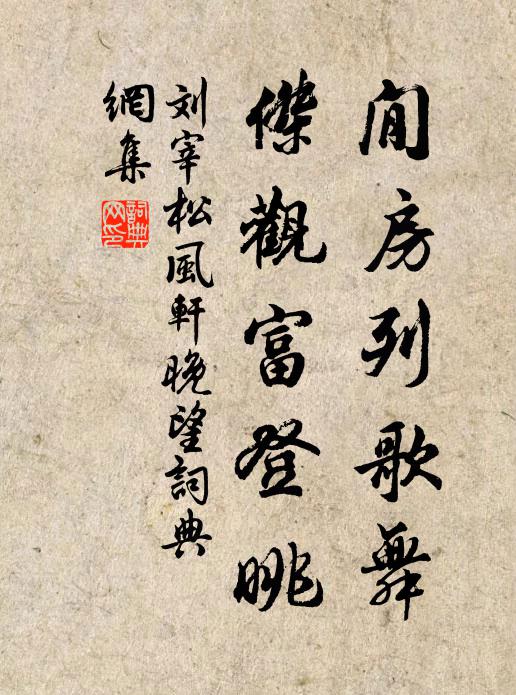 閒房列歌舞
傑觀富登眺
刘宰松風軒晚望詞典
網集
詞典
网印